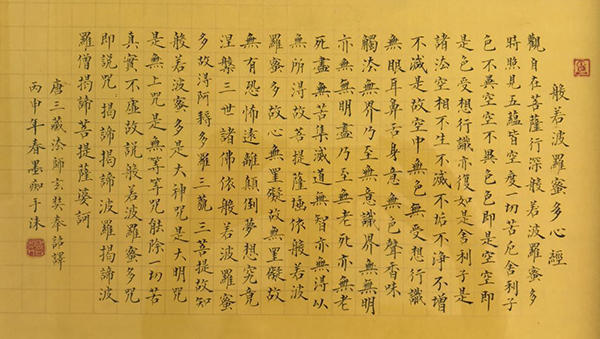 般若波羅蜜多心經
觀自在菩薩行深般若波羅蜜多
時照見五蘊皆空度一切苦厄舍利子
色不異空空不異色色即是空空即
是色受想行識亦復如是舍利子是
諸法空相不生不滅不垢不淨不增
不減是故空中無色無受想行識
無眼耳鼻舌身意無色聲香味
觸法無界乃至無意識界無無明
亦無無明盡乃至無老死亦無老
死盡無苦集滅道無智亦無得以
無所得故菩提薩埵依般若波
羅蜜多故心無罣礙故無罣礙故
無有恐怖遠離顛倒夢想究竟
涅槃三世諸佛依般若波羅蜜
多故得阿耨多羅三藐三菩提故知
般若波羅蜜多是大神咒是大明咒
是無上咒是無等等咒能除一切苦
真實不虛故說般若波羅蜜多咒
即說咒曰揭諦揭諦波羅揭諦波
羅僧揭諦菩提薩婆訶
唐三藏法師玄奘奉詔譯
丙申年春墨